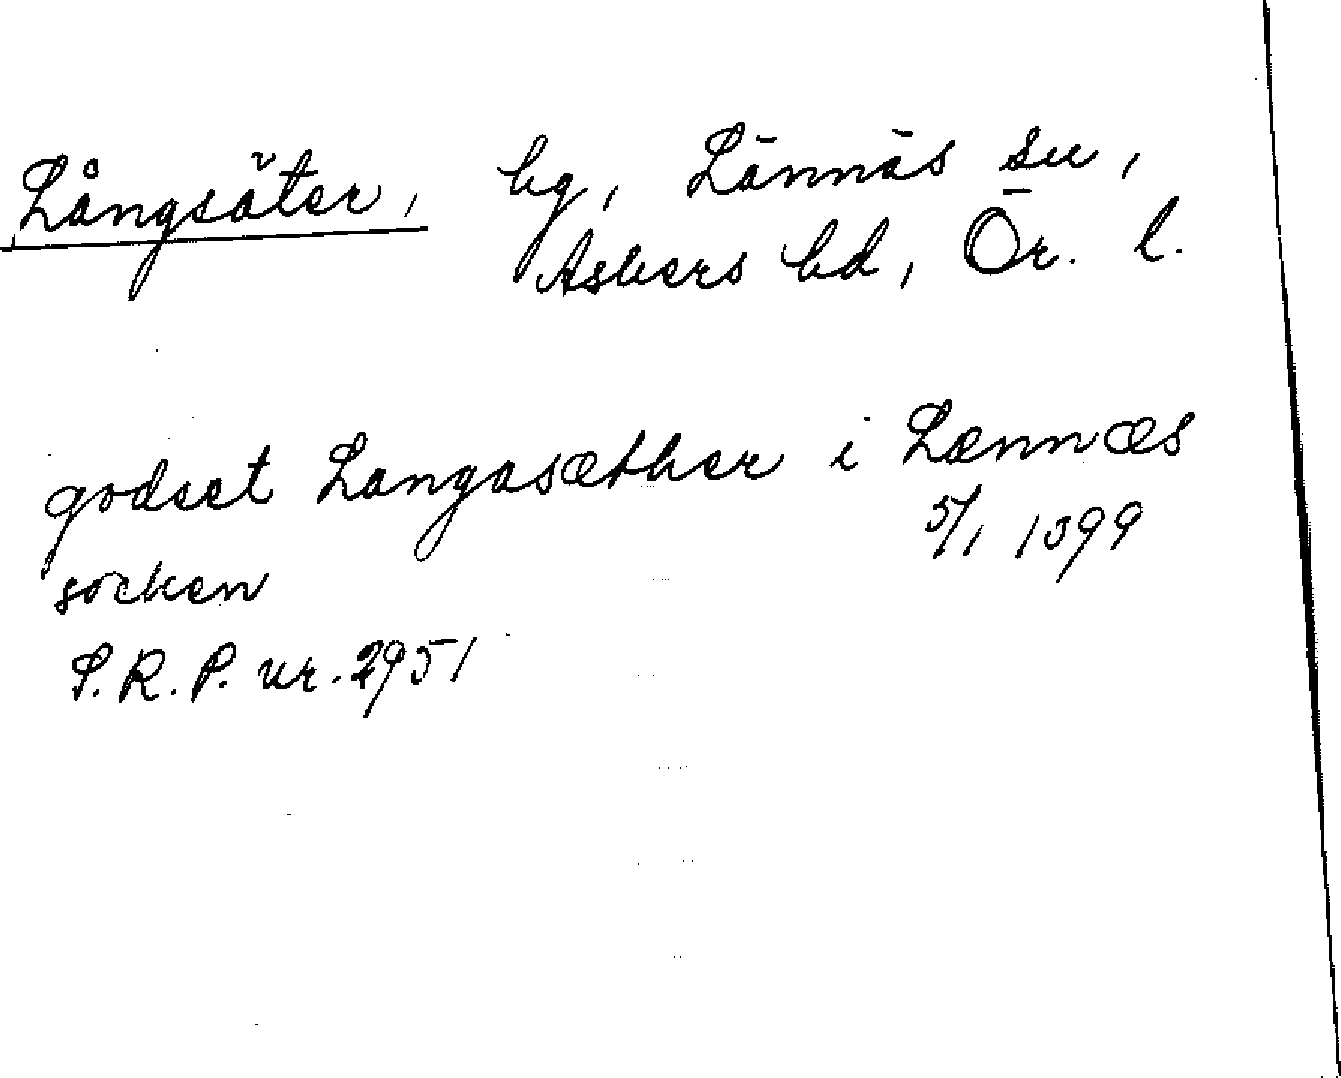 Långsäter, hg, Lännäs sn,
Askers hd, Ör. l.
godset Langasæther i Lænnæs
socken 5/1 1399
S.R.P. nr. 2951